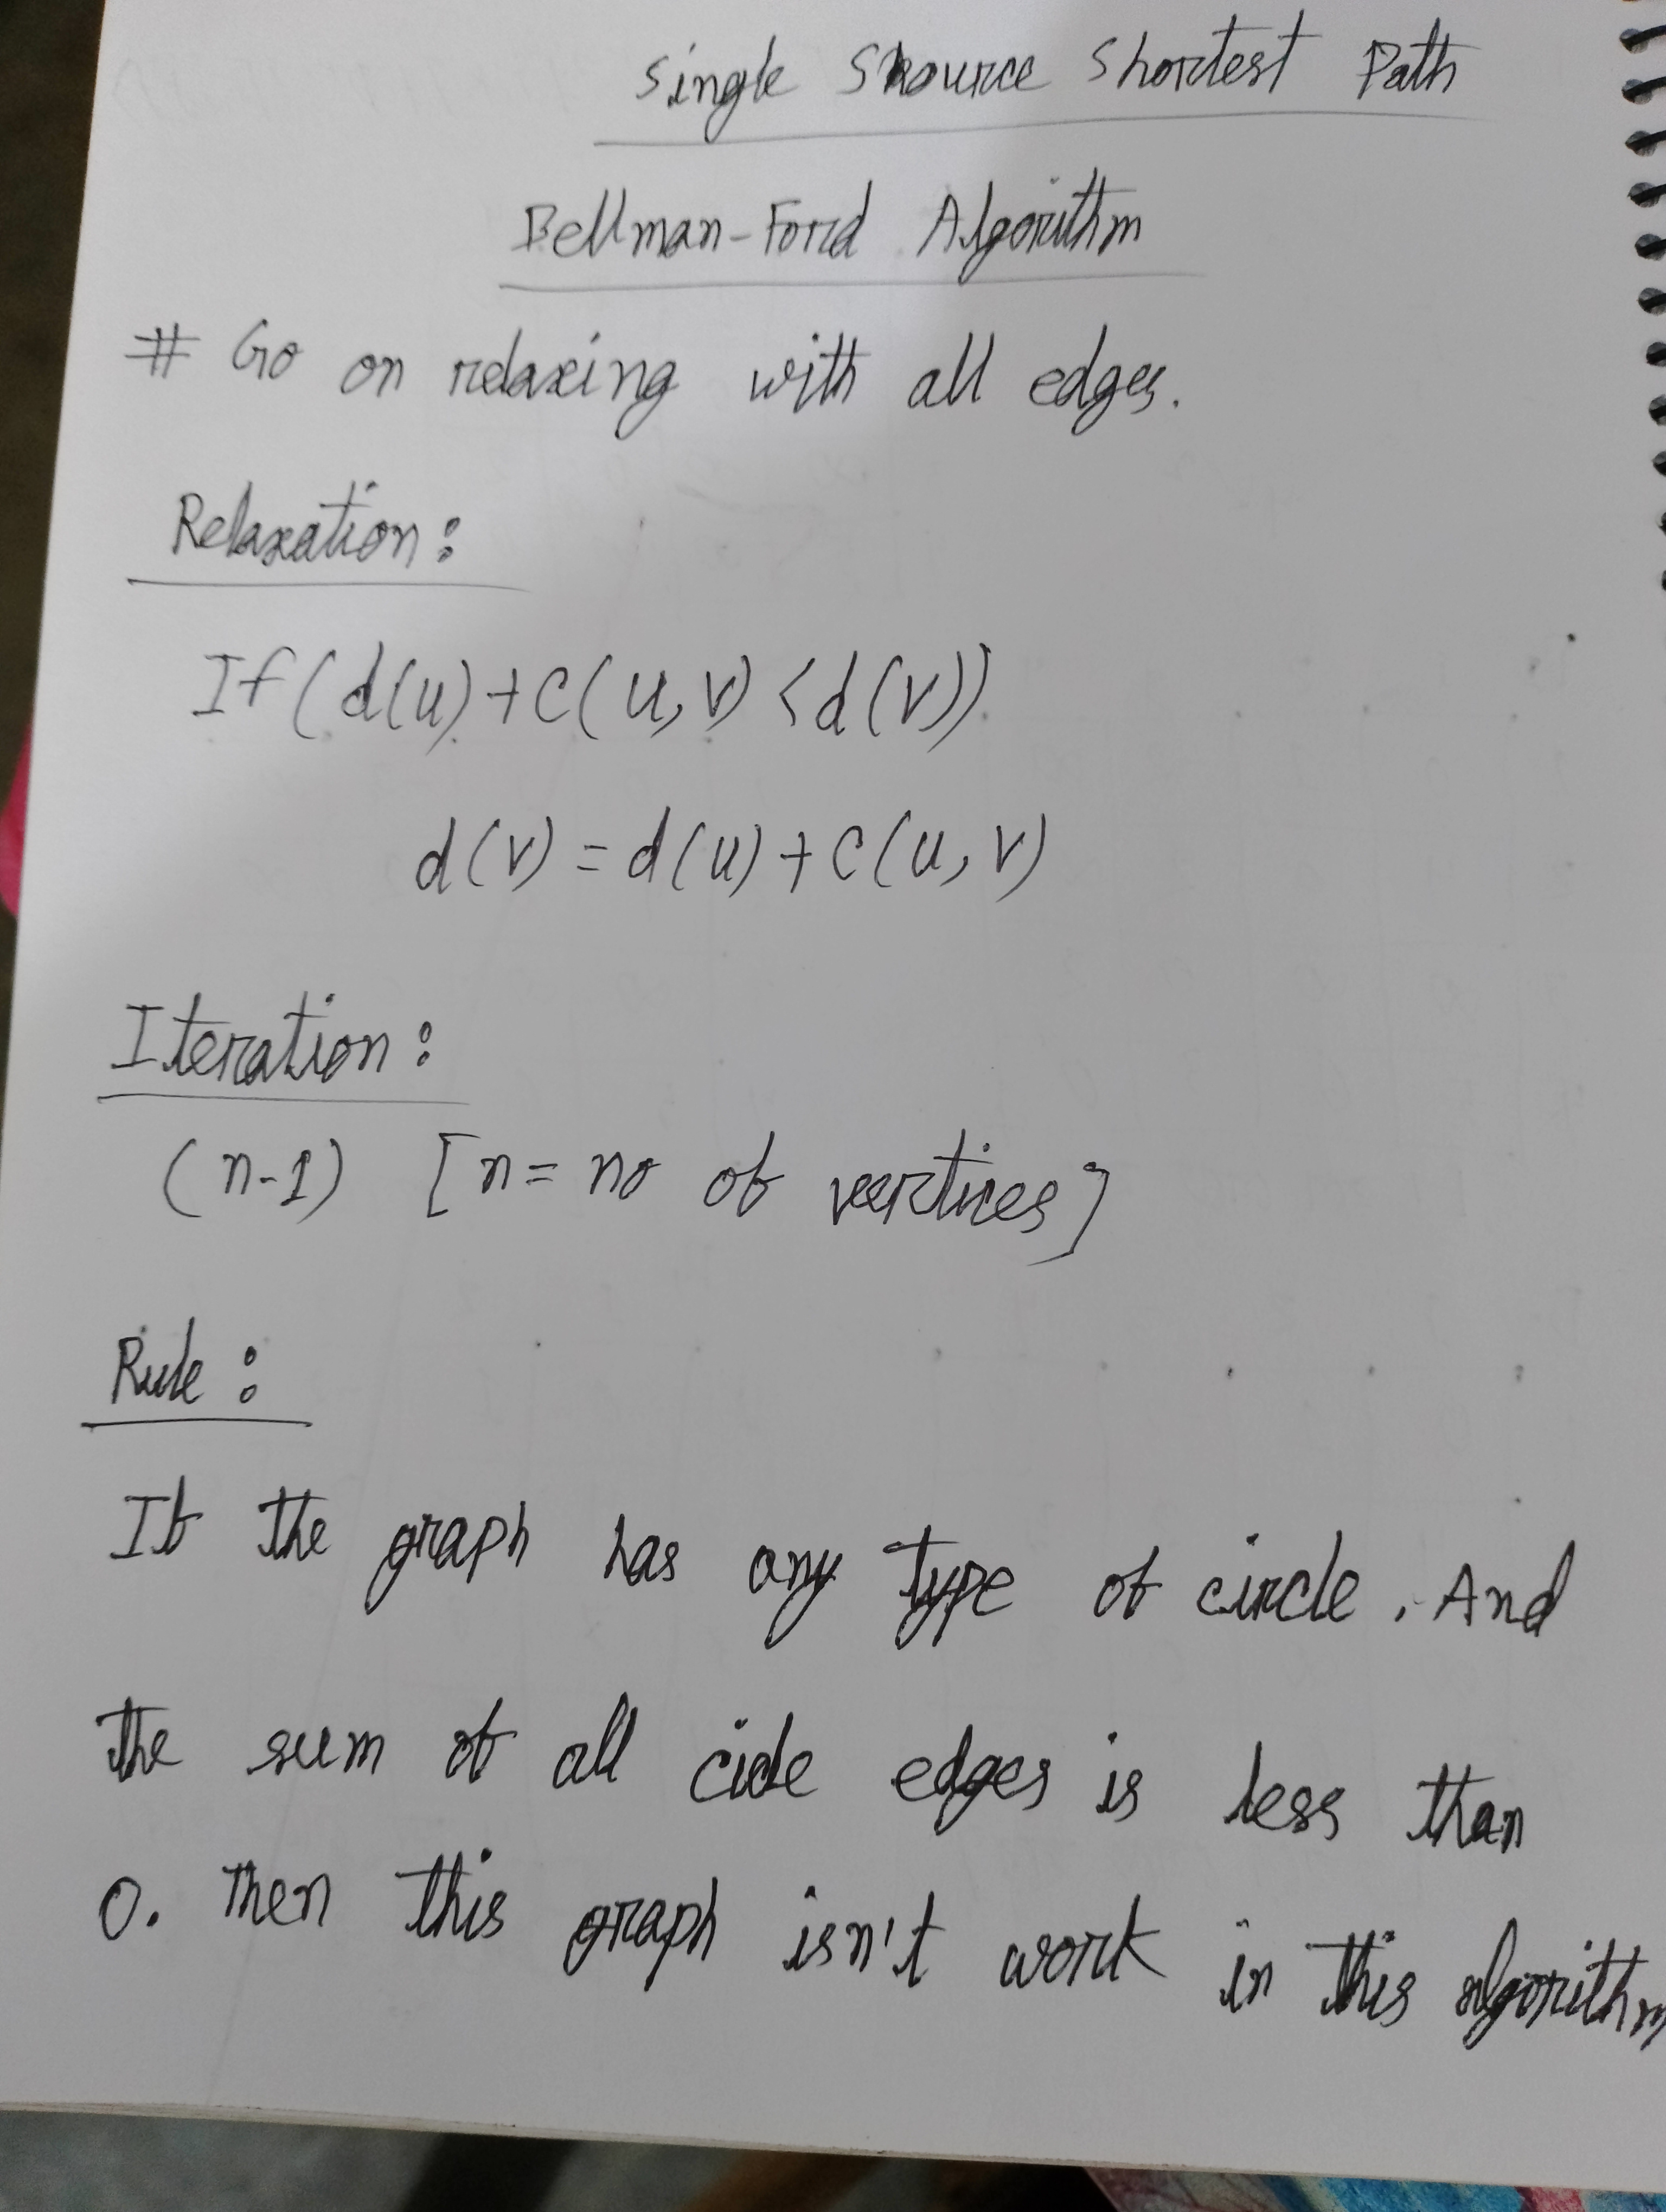 Single Source Shortest Path
Bellman-Ford Algorithm
# Go on relaxing with all edges.
Relaxation:
If(d(u)+c(u,v)<d(v))
d(v)=d(u)+c(u,v)
Iteration:
(n-1) [n= no of vertices]
Rule:
If the graph has any type of circle. And
the sum of all cicle edges is less than
0. Then this graph isn't work in this algorithm